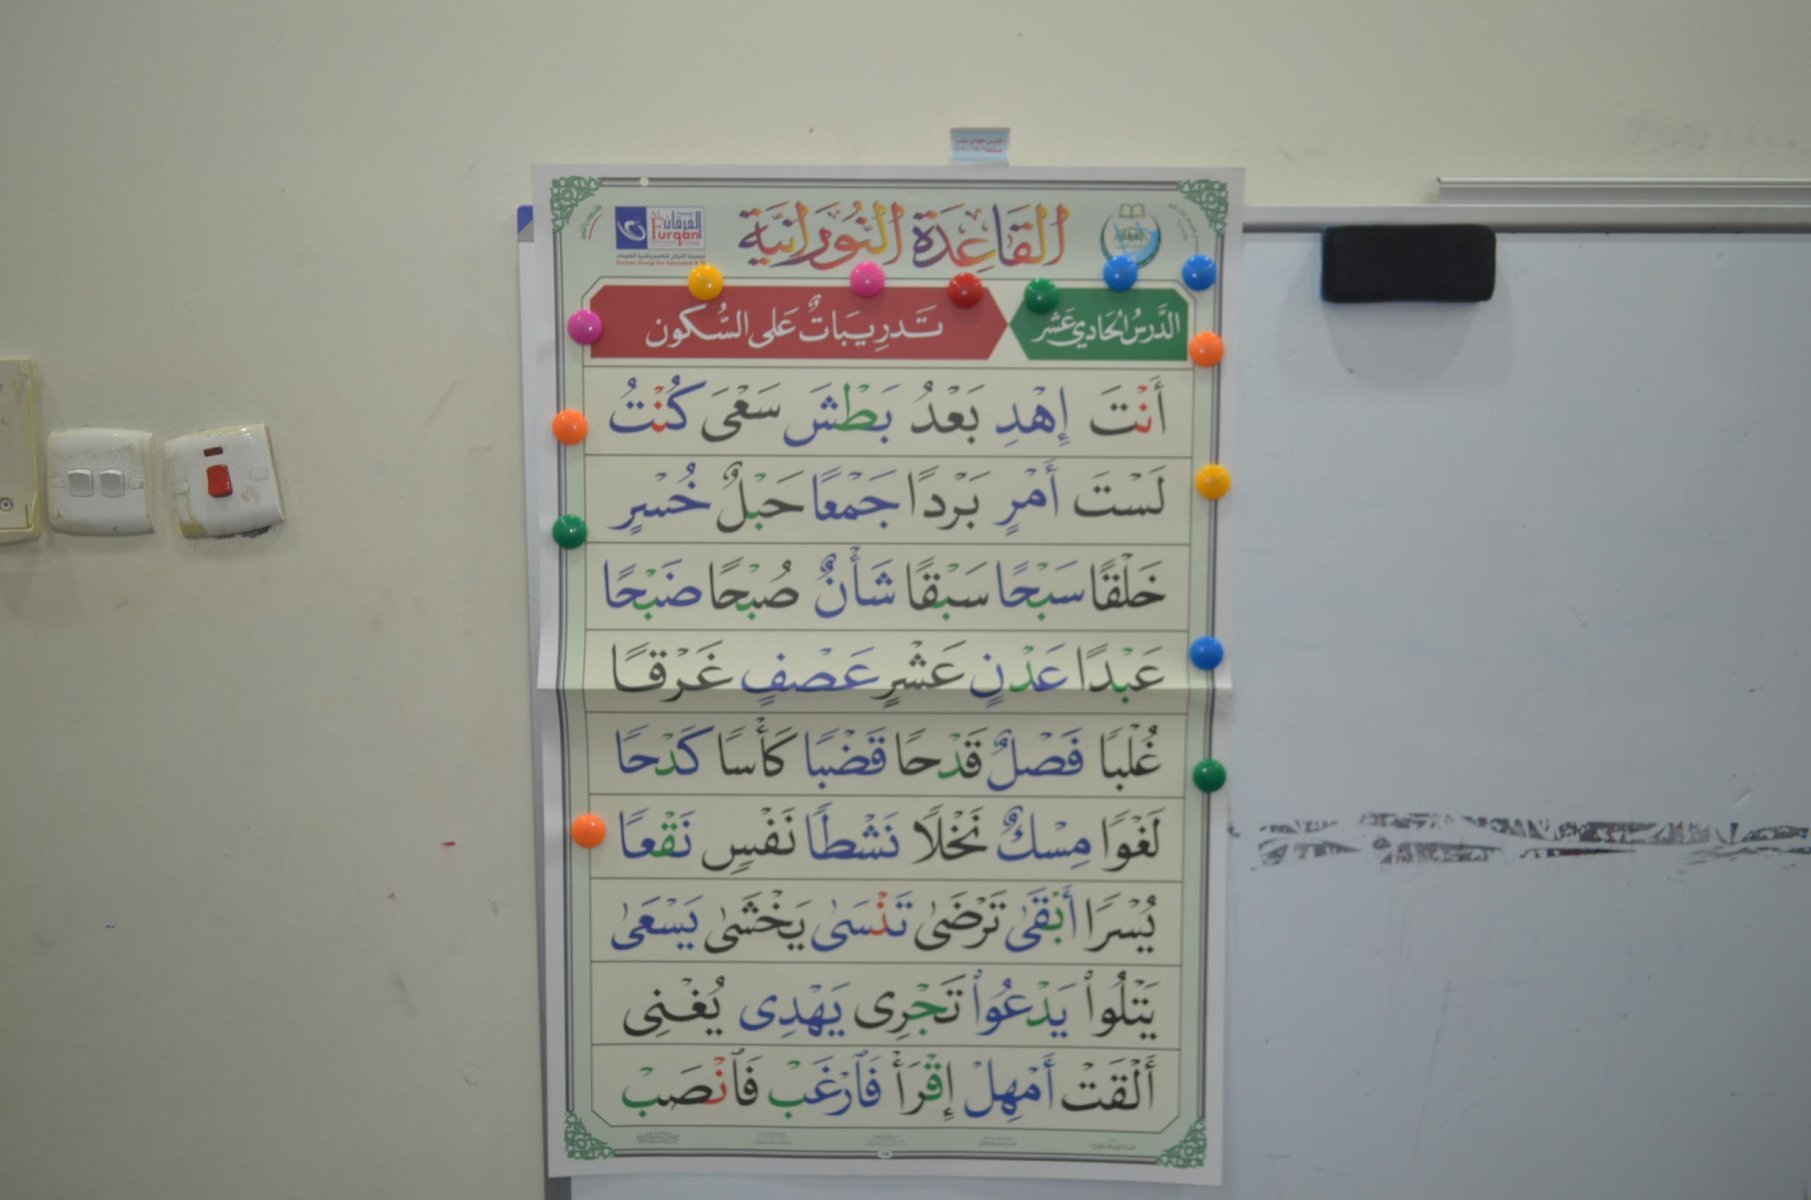 القَاعِدَة النُّورَانِيَّة
الفرقان
Furqan
Furqan Group for Education & IT
الدَّرسُ الحَادِي عَشَر
تَدرِيبَاتٌ عَلى السُّكون
أَنْتَ إِهْدِ بَعْدُ بَطْشَ سَعْىَ كُنْتُ
لَسْتَ أَمْرٍ بَرْدًا جَمْعًا حَبْلٌ خُسْرٍ
خَلْقًا سَبْحًا سَبْقًا شَأْنٌ صُبْحًا ضَبْحًا
عَبْدًا عَدْنٍ عَشْرٍ عَصْفٍ غَرْقًا
غُلْبًا فَصْلٌ قَدْحًا قَضْبًا كَأْسًا كَدْحًا
لَغْوًا مِسْكٌ نَخْلًا نَشْطًا نَفْسٍ نَقْعًا
يُسْرًا أَبْقَىٰ تَرْضَىٰ تَنْسَىٰ يَخْشَىٰ يَسْعَىٰ
يَتْلُواْ يَدْعُواْ تَجْرِى يَهْدِى يُغْنِى
أَلْقَتْ أَمْهِلْ إِقْرَأْ فَٱرْغَبْ فَٱنْصَبْ